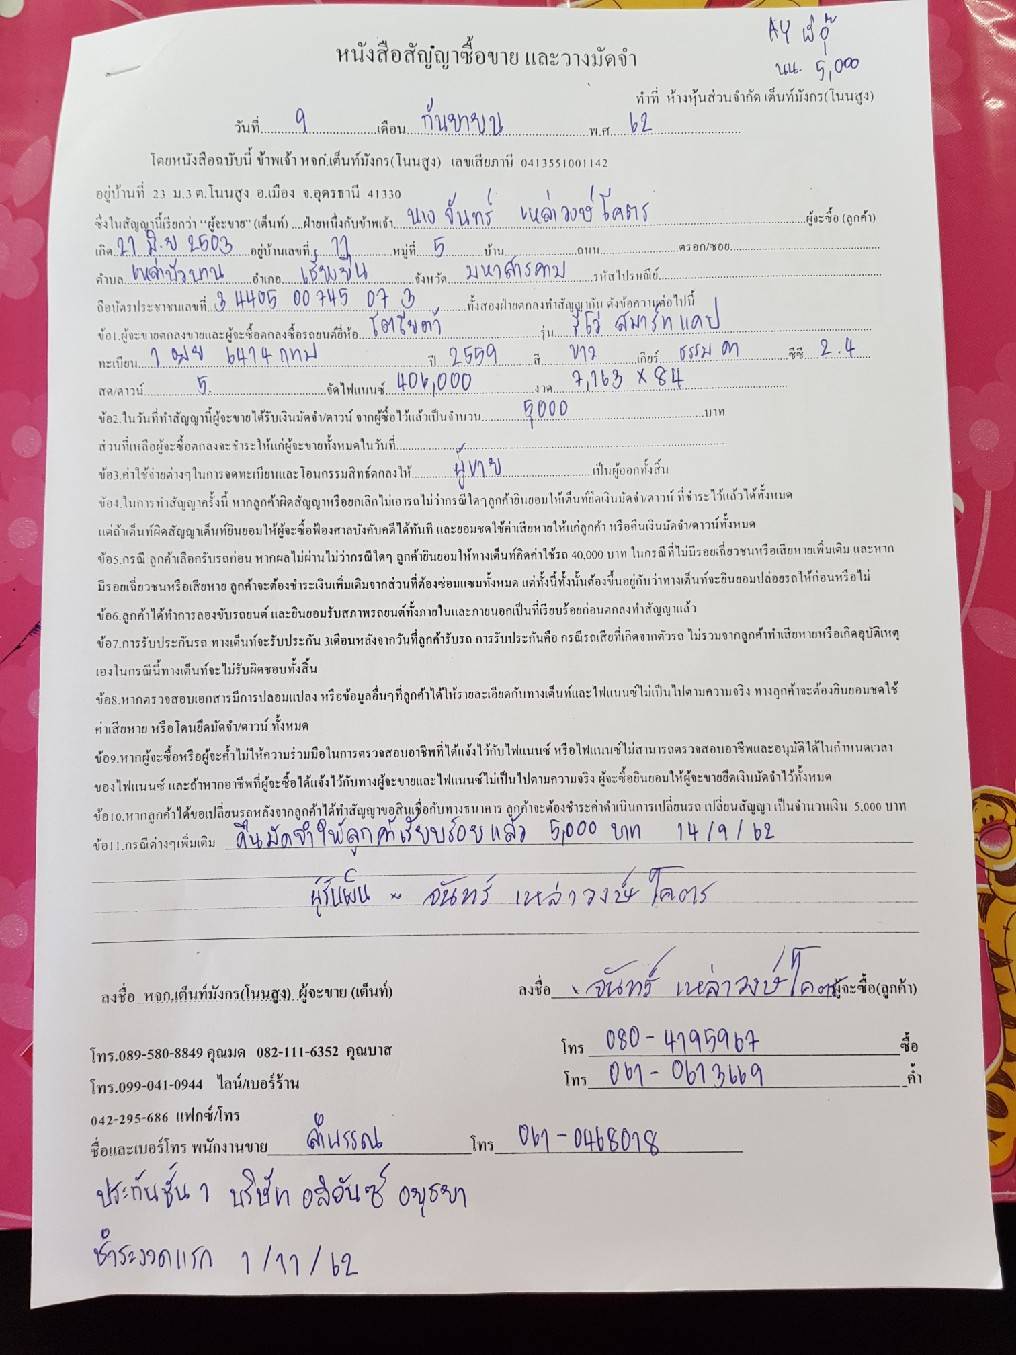 AY
นน. 5,000
หนังสือสัญญาซื้อขาย และวางมัดจำ
ทำที่ ห้างหุ้นส่วนจำกัด เต็นท์มังกร(โนนสูง)
วันที่ 9 เดือน กันยายน พ.ศ 62
โดยหนังสือฉบับนี้ ข้าพเจ้า หจก.เต็นท์มังกร(โนนสูง) เลขเสียภาษี 0413551001142
อยู่บ้านที่ 23 ม.3 ต.โนนสูง อ.เมือง จ.อุดรธานี 41330
ซึ่งในสัญญานี้เรียกว่า "ผู้จะขาย"(เต็นท์) ฝ่ายหนึ่งกับข้าพเจ้า นาง จันทร์ เหล่าวงษ์โคตร ผู้จะซื้อ (ลูกค้า)
เกิด 21 มิ.ย 2503 อยู่บ้านเลขที่ 11 หมู่ที่ 5 บ้าน ถนน ตรอก/ซอย
ตำบล เหล่าบัวบาน อำเภอ เชียงยืน จังหวัด มหาสารคาม รหัสไปรษณีย์
ถือบัตรประชาชนเลขที่ 3 4405 00745 07 3 ทั้งสองฝ่ายตกลงทำสัญญากัน ดังข้อความต่อไปนี้
ข้อ1.ผู้จะขายตกลงขายและผู้จะซื้อตกลงซื้อรถยนต์ยี่ห้อ โตโยต้า รุ่น รีโว่ สมาร์ทแคป
ทะเบียน 1 ฒย 6414 กทม ปี 2559 สี ขาว เกียร์ ธรรมดา ซีซี 2.4
สด/ดาวน์ 5. จัดไฟแนนซ์ 406,000 งวด 7,163 x 84
ข้อ2.ในวันที่ทำสัญญานี้ผู้จะขายได้รับเงินมัดจำ/ดาวน์ จากผู้ซื้อไว้แล้วเป็นจำนวน 5,000 บาท
ส่วนที่เหลือผู้จะซื้อตกลงจะชำระให้แก่ผู้จะขายทั้งหมดในวันที่
ข้อ3.ค่าใช้จ่ายต่างๆในการจดทะเบียนและโอนกรรมสิทธิ์ตกลงให้ ผู้ขาย เป็นผู้ออกทั้งสิ้น
ข้อ4.ในการทำสัญญาครั้งนี้ หากลูกค้าผิดสัญญาหรือยกเลิกไม่เอารถไม่ว่ากรณีใดๆลูกค้ายินยอมให้เต็นท์ยึดเงินมัดจำ/ดาวน์ ที่ชำระไว้แล้วได้ทั้งหมด
แต่ถ้าเต็นท์ผิดสัญญาเต็นท์ยินยอมให้ผู้จะซื้อฟ้องศาลบังคับคดีได้ทันที และยอมชดใช้ค่าเสียหายให้แก่ลูกค้า หรือคืนเงินมัดจำ/ดาวน์ทั้งหมด
ข้อ5.กรณี ลูกค้าเลือกรับรถก่อน หากผลไม่ผ่านไม่ว่ากรณีใดๆ ลูกค้ายินยอมให้ทางเต็นท์คิดค่าใช้รถ 40,000 บาท ในกรณีที่ไม่มีรอยเฉี่ยวชนหรือเสียหายเพิ่มเติม และหาก
มีรอยเฉี่ยวชนหรือเสียหาย ลูกค้าจะต้องชำระเงินเพิ่มเติมจากส่วนที่ต้องซ่อมแซมทั้งหมด แต่ทั้งนี้ทั้งนั้นต้องขึ้นอยู่กับว่าทางเต็นท์จะยินยอมปล่อยรถให้ก่อนหรือไม่
ข้อ6.ลูกค้าได้ทำการลองขับรถยนต์ และยินยอมรับสภาพรถยนต์ทั้งภายในและภายนอกเป็นที่เรียบร้อยก่อนตกลงทำสัญญาแล้ว
ข้อ7.การรับประกันรถ ทางเต็นท์จะรับประกัน 3เดือนหลังจากวันที่ลูกค้ารับรถ การรับประกันคือ กรณีรถเสียที่เกิดจากตัวรถ ไม่รวมจากลูกค้าทำเสียหายหรือเกิดอุบัติเหตุ
เองในกรณีนี้ทางเต็นท์จะไม่รับผิดชอบทั้งสิ้น
ข้อ8.หากตรวจสอบเอกสารมีการปลอมแปลง หรือข้อมูลอื่นๆที่ลูกค้าได้ให้รายละเอียดกับทางเต็นท์และไฟแนนซ์ไม่เป็นไปตามความจริง ทางลูกค้าจะต้องยินยอมชดใช้
ค่าเสียหาย หรือโดนยึดมัดจำ/ดาวน์ ทั้งหมด
ข้อ9.หากผู้จะซื้อหรือผู้จะค้ำไม่ให้ความร่วมมือในการตรวจสอบอาชีพที่ได้แจ้งไว้กับไฟแนนซ์ หรือไฟแนนซ์ไม่สามารถตรวจสอบอาชีพและอนุมัติได้ในกำหนดเวลา
ของไฟแนนซ์ และถ้าหากอาชีพที่ผู้จะซื้อได้แจ้งไว้กับทางผู้จะขายและไฟแนนซ์ไม่เป็นไปตามความจริง ผู้จะซื้อยินยอมให้ผู้จะขายยึดเงินมัดจำไว้ทั้งหมด
ข้อ10.หากลูกค้าได้ขอเปลี่ยนรถหลังจากลูกค้าได้ทำสัญญาขอสินเชื่อกับทางธนาคาร ลูกค้าจะต้องชำระค่าดำเนินการเปลี่ยนรถ เปลี่ยนสัญญา เป็นจำนวนเงิน 5,000 บาท
ข้อ11.กรณีต่างๆเพิ่มเติม คืนมัดจำให้ลูกค้าเรียบร้อยแล้ว 5,000 บาท 14/9/62
ผู้รับเงิน จันทร์ เหล่าวงษ์โคตร
ลงชื่อ หจก.เต็นท์มังกร(โนนสูง) ผู้จะขาย (เต็นท์) ลงชื่อ จันทร์ เหล่าวงษ์โคตร ผู้จะซื้อ(ลูกค้า)
โทร.089-580-8849 คุณมด 082-111-6352 คุณบาส โทร 080-4195967 ซื้อ
โทร.099-041-0944 ไลน์/เบอร์ร้าน โทร 061-0613669 ค้ำ
042-295-686 แฟกซ์/โทร
ชื่อและเบอร์โทร พนักงานขาย ลำพรรณ โทร 061-0468018
ประกันชั้น 1 บริษัท อลิอันซ์ อยุธยา
ชำระงวดแรก 1/11/62